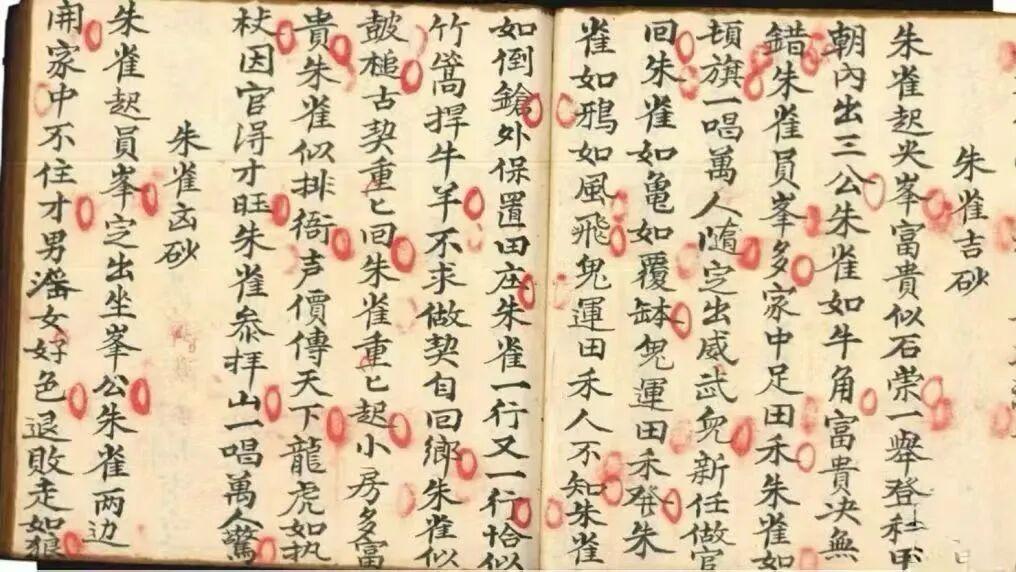 朱雀吉砂
朱雀起火峯富貴似石崇一舉登科甲
朝內出三公朱雀如牛角富貴决無
錯朱雀員峯多家中足田禾朱雀如
頓旗一唱萬人隨定出威武兇新任做官
回朱雀如亀如覆缽兇運田禾發朱
雀如鴉如風飛兇運田禾人不知朱雀
如倒鎗外保置田庄朱雀一行又一行恰似
竹篙捍牛羊不求做契自回鄉朱雀似
皷槌古契重匕回朱雀重匕起小房多富
貴朱雀似排衙声價傳天下龍虎如执
杖因官淂才旺朱雀叅拜山一唱萬人驚
朱雀凶砂
朱雀起員峯定出坐峯公朱雀两边
開家中不住才男滛女好色退敗走如狼